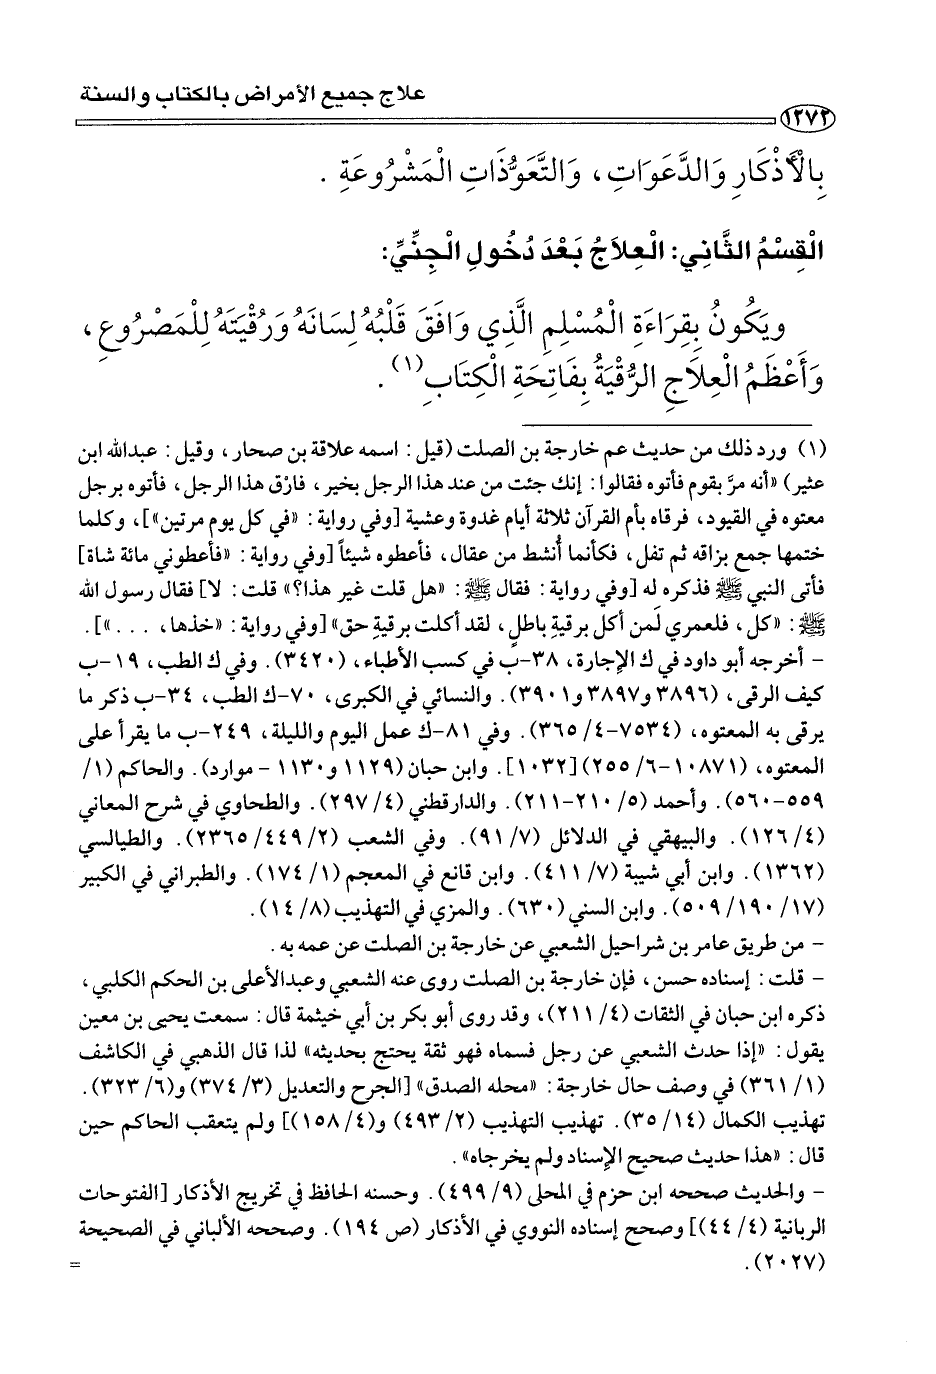 علاج جميع الأمراض بالكتاب والسنة
١٢٧٢
بِالْأَذْكَارِ وَالدَّعَوَاتِ، وَالتَّعَوُّذَاتِ الْمَشْرُوعَةِ .
الْقِسْمُ الثَّانِي: الْعِلاَجُ بَعْدَ دُخُولِ الْجِنِّيِّ:
ويَكُونُ بِقِرَاءَةِ الْمُسْلِمِ الَّذِي وَافَقَ قَلْبُهُ لِسَانَهُ وَرُقْيَتَهُ لِلْمَصْرُوعِ،
وَأَعْظَمُ الْعِلَاجِ الرُّقْيَةُ بِفَاتِحَةِ الْكِتَابِ(١) .
(١) ورد ذلك من حديث عم خارجة بن الصلت (قيل: اسمه علاقة بن صحار، وقيل: عبدالله ابن
عثير) «أنه مرَّ بقوم فأتوه فقالوا: إنك جئت من عند هذا الرجل بخير، فارْق هذا الرجل، فأتوه برجل
معتوه في القيود، فرقاه بأم القرآن ثلاثة أيام غدوة وعشية [وفي رواية: «في كل يوم مرتين»]، وكلما
ختمها جمع بزاقه ثم تفل، فكأنما أُنشط من عقال، فأعطوه شيئاً [وفي رواية: «فأعطوني مائة شاة]
فأتى النبي ﷺ فذكره له [وفي رواية: فقال ﷺ: «هل قلت غير هذا؟» قلت: لا] فقال رسول الله
ﷺ: «كل، فلعمري لَمن أكل برقيةِ باطلٍ، لقد أكلت برقيةِ حق» [وفي رواية: «خذها، ...»].
- أخرجه أبو داود في ك الإجارة، ٣٨-ب في كسب الأطباء، (٣٤٢٠). وفي ك الطب، ١٩-ب
كيف الرقى، (٣٨٩٦ و٣٨٩٧ و٣٩٠١). والنسائي في الكبرى، ٧٠-ك الطب، ٣٤-ب ذكر ما
يرقى به المعتوه، (٧٥٣٤-٤/ ٣٦٥). وفي ٨١-ك عمل اليوم والليلة، ٢٤٩-ب ما يقرأ على
المعتوه، (١٠٨٧١-٦/ ٢٥٥) [١٠٣٢]. وابن حبان (١١٢٩ و١١٣٠ - موارد). والحاكم (١/
٥٥٩-٥٦٠). وأحمد (٥/ ٢١٠-٢١١). والدارقطني (٤/ ٢٩٧). والطحاوي في شرح المعاني
(٤/ ١٢٦). والبيهقي في الدلائل (٧/ ٩١). وفي الشعب (٢/ ٤٤٩/ ٢٣٦٥). والطيالسي
(١٣٦٢). وابن أبي شيبة (٧/ ٤١١). وابن قانع في المعجم (١/ ١٧٤). والطبراني في الكبير
(١٧/ ١٩٠/ ٥٠٩). وابن السني (٦٣٠). والمزي في التهذيب (٨/ ١٤).
- من طريق عامر بن شراحيل الشعبي عن خارجة بن الصلت عن عمه به.
- قلت: إسناده حسن، فإن خارجة بن الصلت روى عنه الشعبي وعبدالأعلى بن الحكم الكلبي،
ذكره ابن حبان في الثقات (٤/ ٢١١)، وقد روى أبو بكر بن أبي خيثمة قال: سمعت يحيى بن معين
يقول: «إذا حدث الشعبي عن رجل فسماه فهو ثقة يحتج بحديثه» لذا قال الذهبي في الكاشف
(١/ ٣٦١) في وصف حال خارجة: «محله الصدق» [الجرح والتعديل (٣/ ٣٧٤) و(٦/ ٣٢٣).
تهذيب الكمال (١٤/ ٣٥). تهذيب التهذيب (٢/ ٤٩٣) و(٤/ ١٥٨)] ولم يتعقب الحاكم حين
قال: «هذا حديث صحيح الإسناد ولم يخرجاه».
- والحديث صححه ابن حزم في المحلى (٩/ ٤٩٩). وحسنه الحافظ في تخريج الأذكار [الفتوحات
الربانية (٤/ ٤٤)] وصحح إسناده النووي في الأذكار (ص ١٩٤). وصححه الألباني في الصحيحة
(٢٠٢٧). =